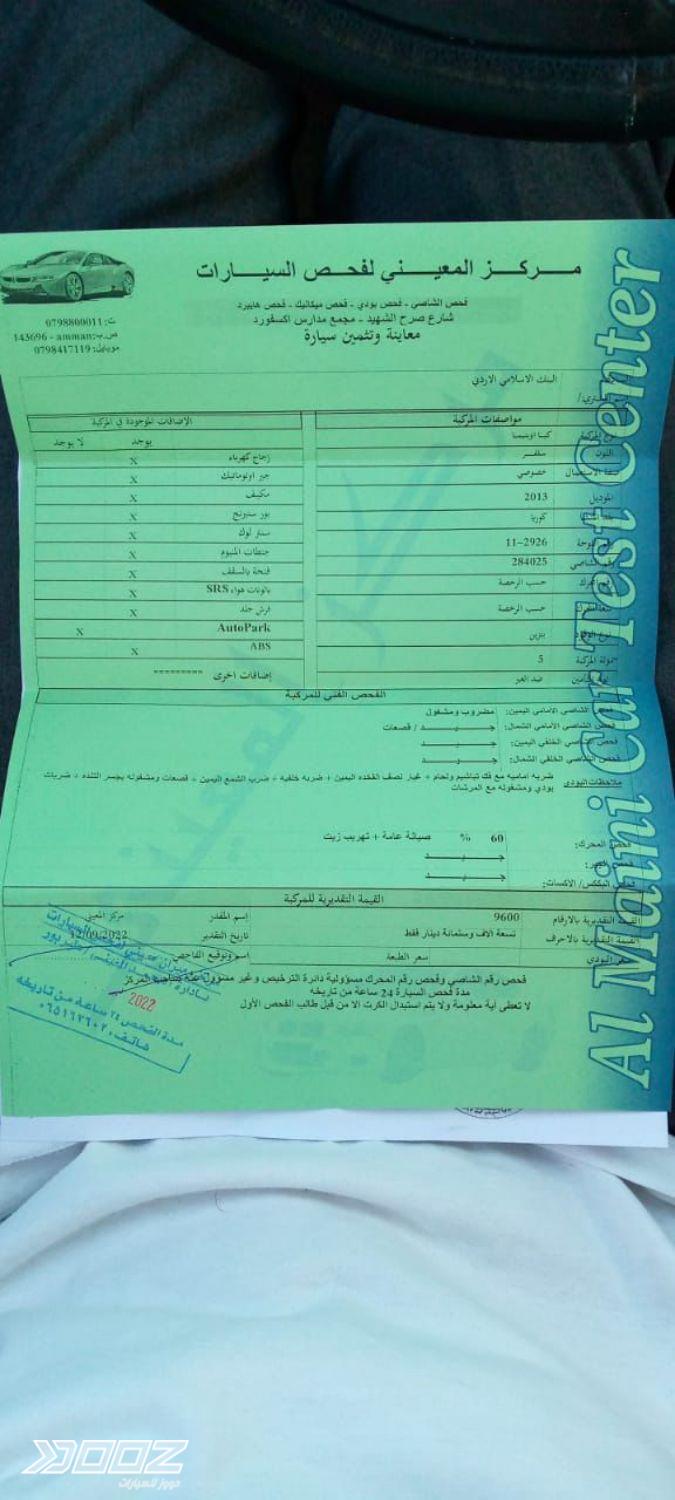 مركز المعيني لفحص السيارات
فحص الشاصي - فحص بودي - فحص ميكانيك - فحص هايبرد
شارع صرح الشهيد - مجمع مدارس اكسفورد
معاينة وتثمين سيارة
ت: 0798800011
ص.ب: amman - 143696
موبايل: 0798417119
البنك الاسلامي الاردني
مواصفات المركبة
كيا اوبتيما
اللون سلفر
صفة الاستعمال خصوصي
الموديل 2013
كوريا
11-2926
رقم الشاصي 284025
حسب الرخصة
حسب الرخصة
نوع الوقود بنزين
حمولة المركبة 5
ضد الغير
الإضافات الموجودة في المركبة
يوجد لا يوجد
زجاج كهرباء X
جير اوتوماتيك X
مكيف X
بور ستيرنج X
سنتر لوك X
جنطات المنيوم X
فتحة بالسقف X
بالونات هواء SRS X
فرش جلد X
AutoPark X
ABS X
إضافات اخرى *********
الفحص الفني للمركبة
فحص الشاصي الامامي اليمين: مضروب ومشغول
فحص الشاصي الامامي الشمال: جيد / قصعات
فحص الشاصي الخلفي اليمين: جيد
فحص الشاصي الخلفي الشمال: جيد
ملاحظات البودي ضربه اماميه مع فك تباشيم ولحام + غيار نصف الفخده اليمين + ضربه خلفيه + ضرب الشمع اليمين + قصعات ومشغوله بجسر التنده + ضربات
بودي ومشغوله مع المرشات
فحص المحرك: 60 % صيانة عامة + تهريب زيت
فحص الجير: جيد
فحص البكس/ الاكسات: جيد
القيمة التقديرية للمركبة
القيمة التقديرية بالارقام 9600 إسم المقدر مركز المعيني
القيمة التقديرية بالاحرف تسعة الاف وستمائة دينار فقط تاريخ التقدير 12/09/2022
سعر الطبعة اسم وتوقيع الفاحص
فحص رقم الشاصي وفحص رقم المحرك مسؤولية دائرة الترخيص وغير مسؤول عنه صاحب المركز
مدة فحص السيارة 24 ساعة من تاريخه
لا تعطى أية معلومة ولا يتم استبدال الكرت الا من قبل طالب الفحص الأول
2022
مدة الفحص ٢٤ ساعة من تاريخه
Al Maini Car Test Center
DOOZ
دووز للسيارات